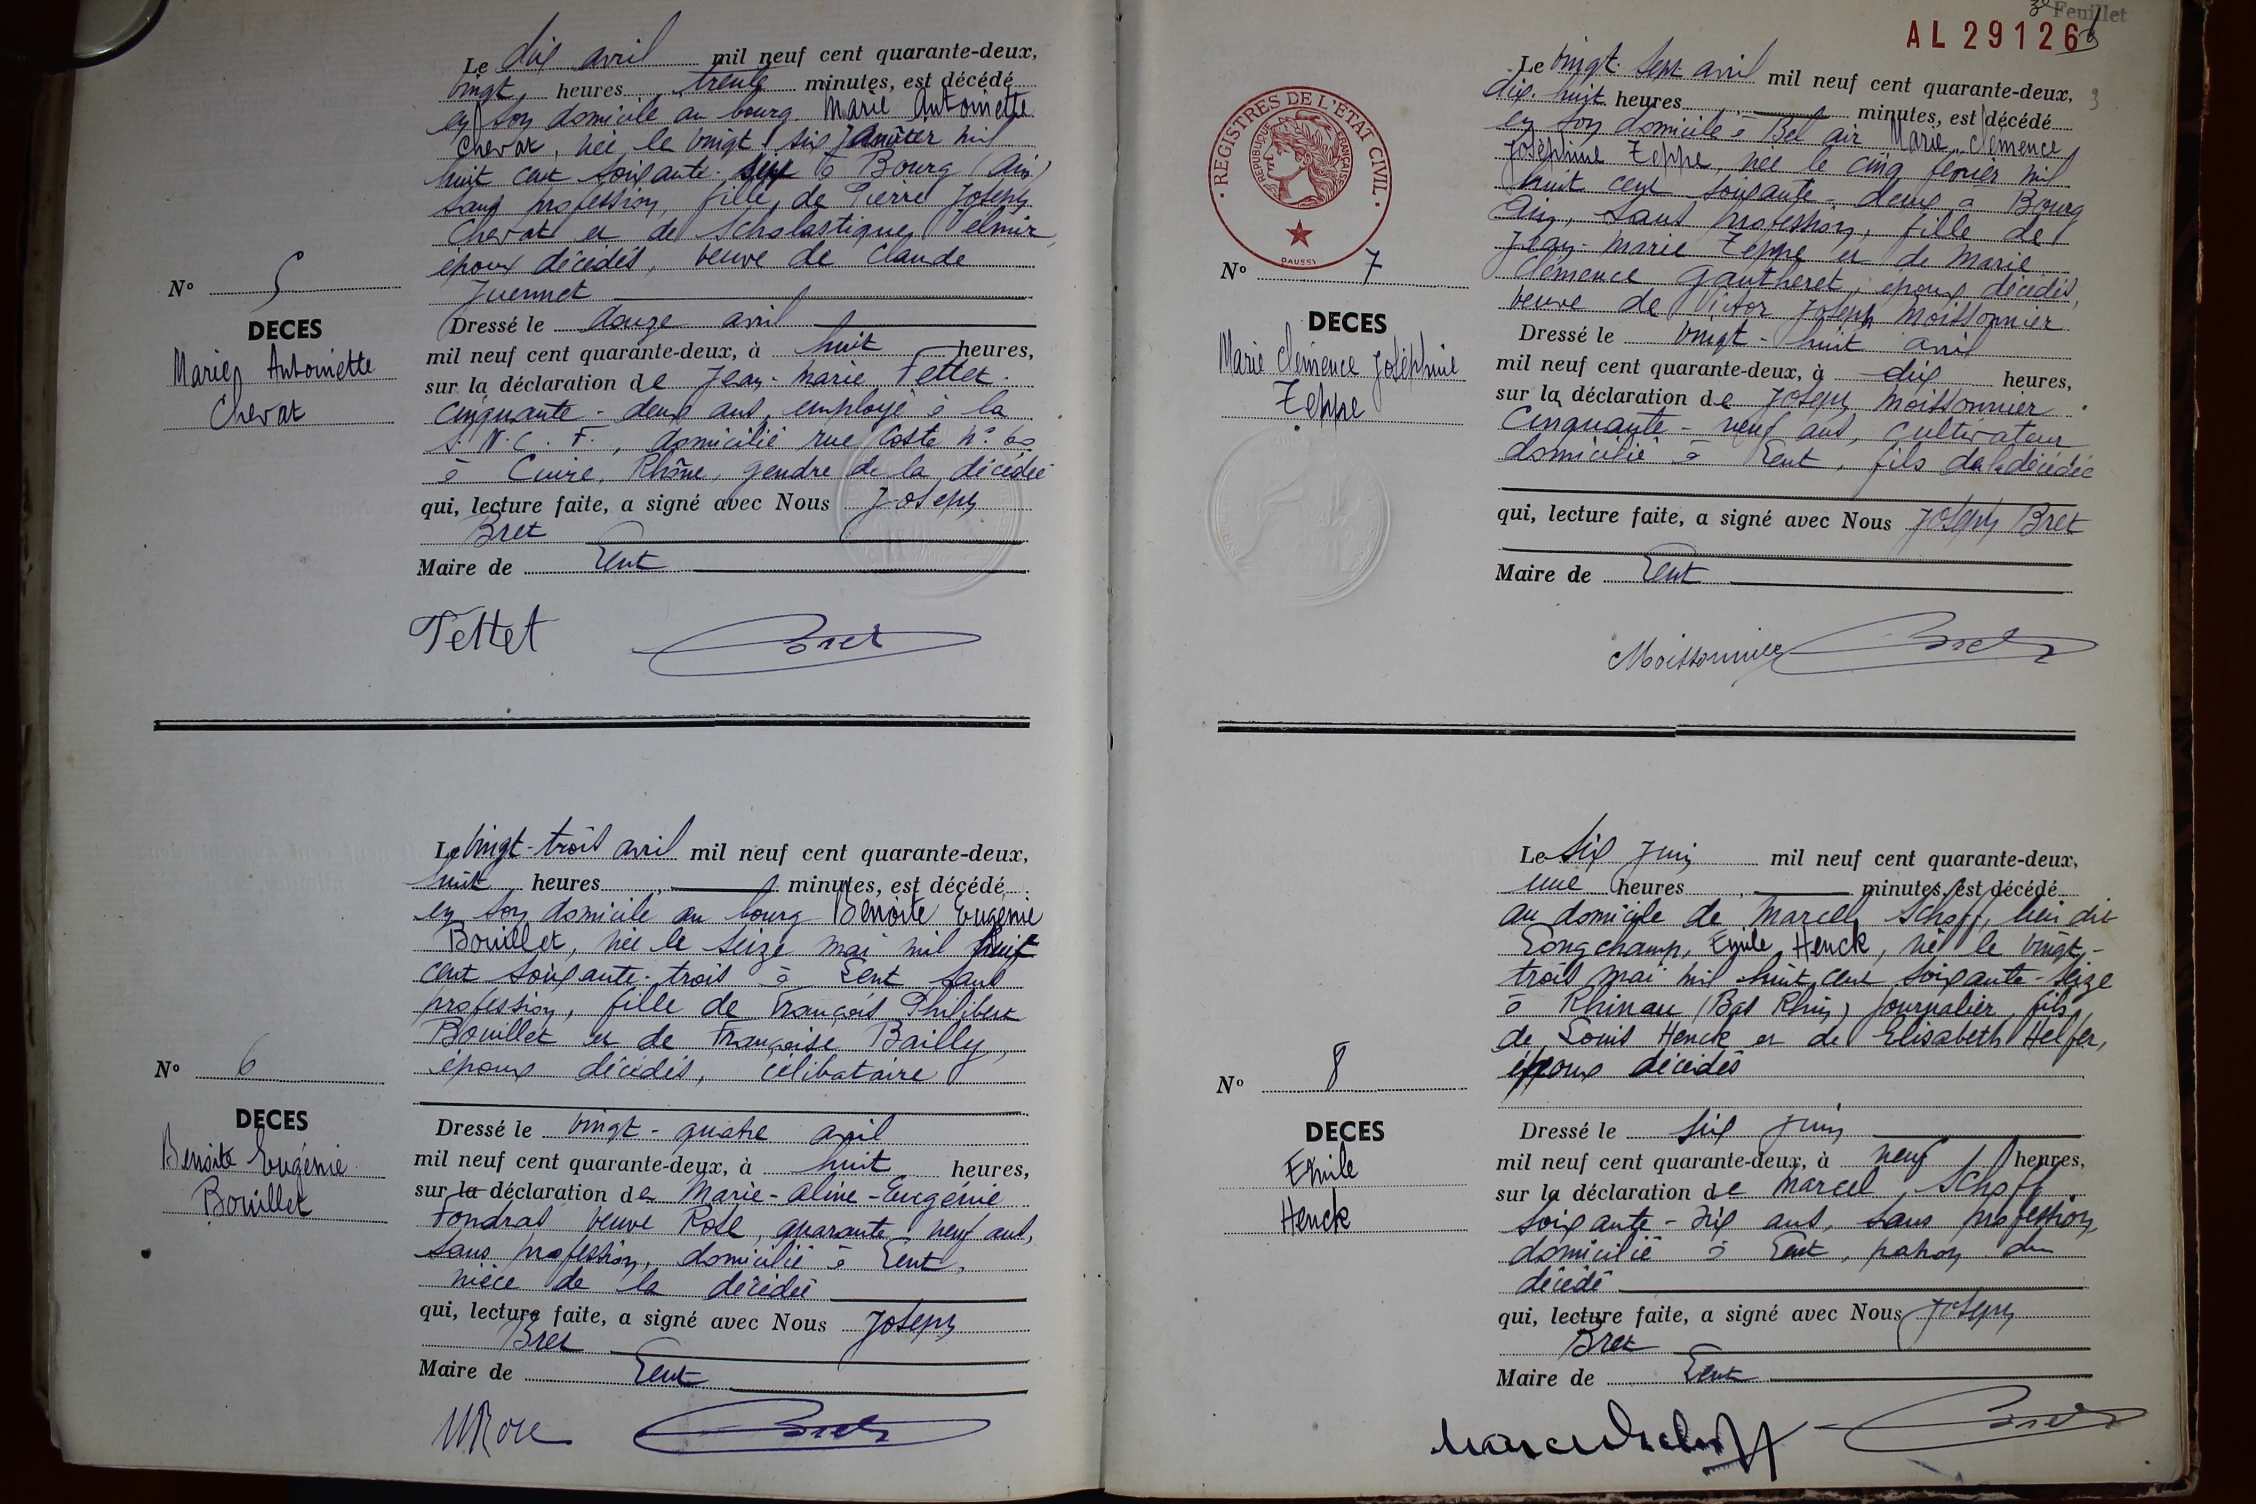 Le dix avril mil neuf cent quarante-deux,
vingt heures trente minutes, est décédé
en son domicile au bourg Marie Antoinette
Chevat, née le vingt six janvier mil
huit cent soixante-six à Bourg (Ain)
sans profession, fille de Pierre Joseph
Chevat et de Scholastique
époux décédés, veuve de Claude
Juennet
N° 5
DECES
Marie Antoinette
Chevat
Dressé le douze avril
mil neuf cent quarante-deux, à huit heures,
sur la déclaration de Jean-Marie Tettet
cinquante-deux ans, employé à la
S.N.C.F., domicilié rue Coste n° 60
à Cuire, Rhône, gendre de la décédée
qui, lecture faite, a signé avec Nous Joseph
Bret
Maire de Lent
Tettet Bret
Le vingt-trois avril mil neuf cent quarante-deux,
huit heures, minutes, est décédé
en son domicile au bourg Benoîte Eugénie
Bouillet, née le seize mai mil huit
cent soixante-trois à Lent sans
profession, fille de François Philibert
Bouillet et de Françoise Bailly,
époux décédés, célibataire
N° 6
DECES
Benoîte Eugénie
Bouillet
Dressé le vingt-quatre avril
mil neuf cent quarante-deux, à huit heures,
sur la déclaration de Marie-Aline-Eugénie
Fondras veuve Rose, quarante-neuf ans,
sans profession, domicilié à Lent,
nièce de la décédée
qui, lecture faite, a signé avec Nous Joseph
Bret
Maire de Lent
MRose Bret
Feuillet
AL 29126
3
REGISTRES DE L'ETAT CIVIL
REPUBLIQUE FRANÇAISE
DAUSSI
Le vingt-sept avril mil neuf cent quarante-deux,
dix-huit heures minutes, est décédé
en son domicile à Bel air Marie Clémence
Joséphine Zeppe, née le cinq février mil
huit cent soixante-deux à Bourg
Ain, sans profession, fille de
Jean-Marie Zeppe et de Marie
Clémence Gautheret, époux décédés,
veuve de Victor Joseph Moissonnier
N° 7
DECES
Marie Clémence Joséphine
Zeppe
Dressé le vingt-huit avril
mil neuf cent quarante-deux, à dix heures,
sur la déclaration de Joseph Moissonnier
cinquante-neuf ans, cultivateur
domicilié à Lent, fils de la décédée
qui, lecture faite, a signé avec Nous Joseph Bret
Maire de Lent
Moissonnier Bret
Le six juin mil neuf cent quarante-deux,
une heures, minutes, est décédé
au domicile de Marcel Schoff, lieu dit
Longchamp, Emile Henck, né le vingt-
trois mai mil huit cent soixante-seize
à Rhinau (Bas Rhin) journalier, fils
de Louis Henck et de Elisabeth Helfer,
époux décédés
N° 8
DECES
Emile
Henck
Dressé le six juin
mil neuf cent quarante-deux, à neuf heures,
sur la déclaration de Marcel Schoff
soixante-dix ans, sans profession,
domicilié à Lent, patron du
décédé
qui, lecture faite, a signé avec Nous Joseph
Bret
Maire de Lent
Marcel Schoff Bret